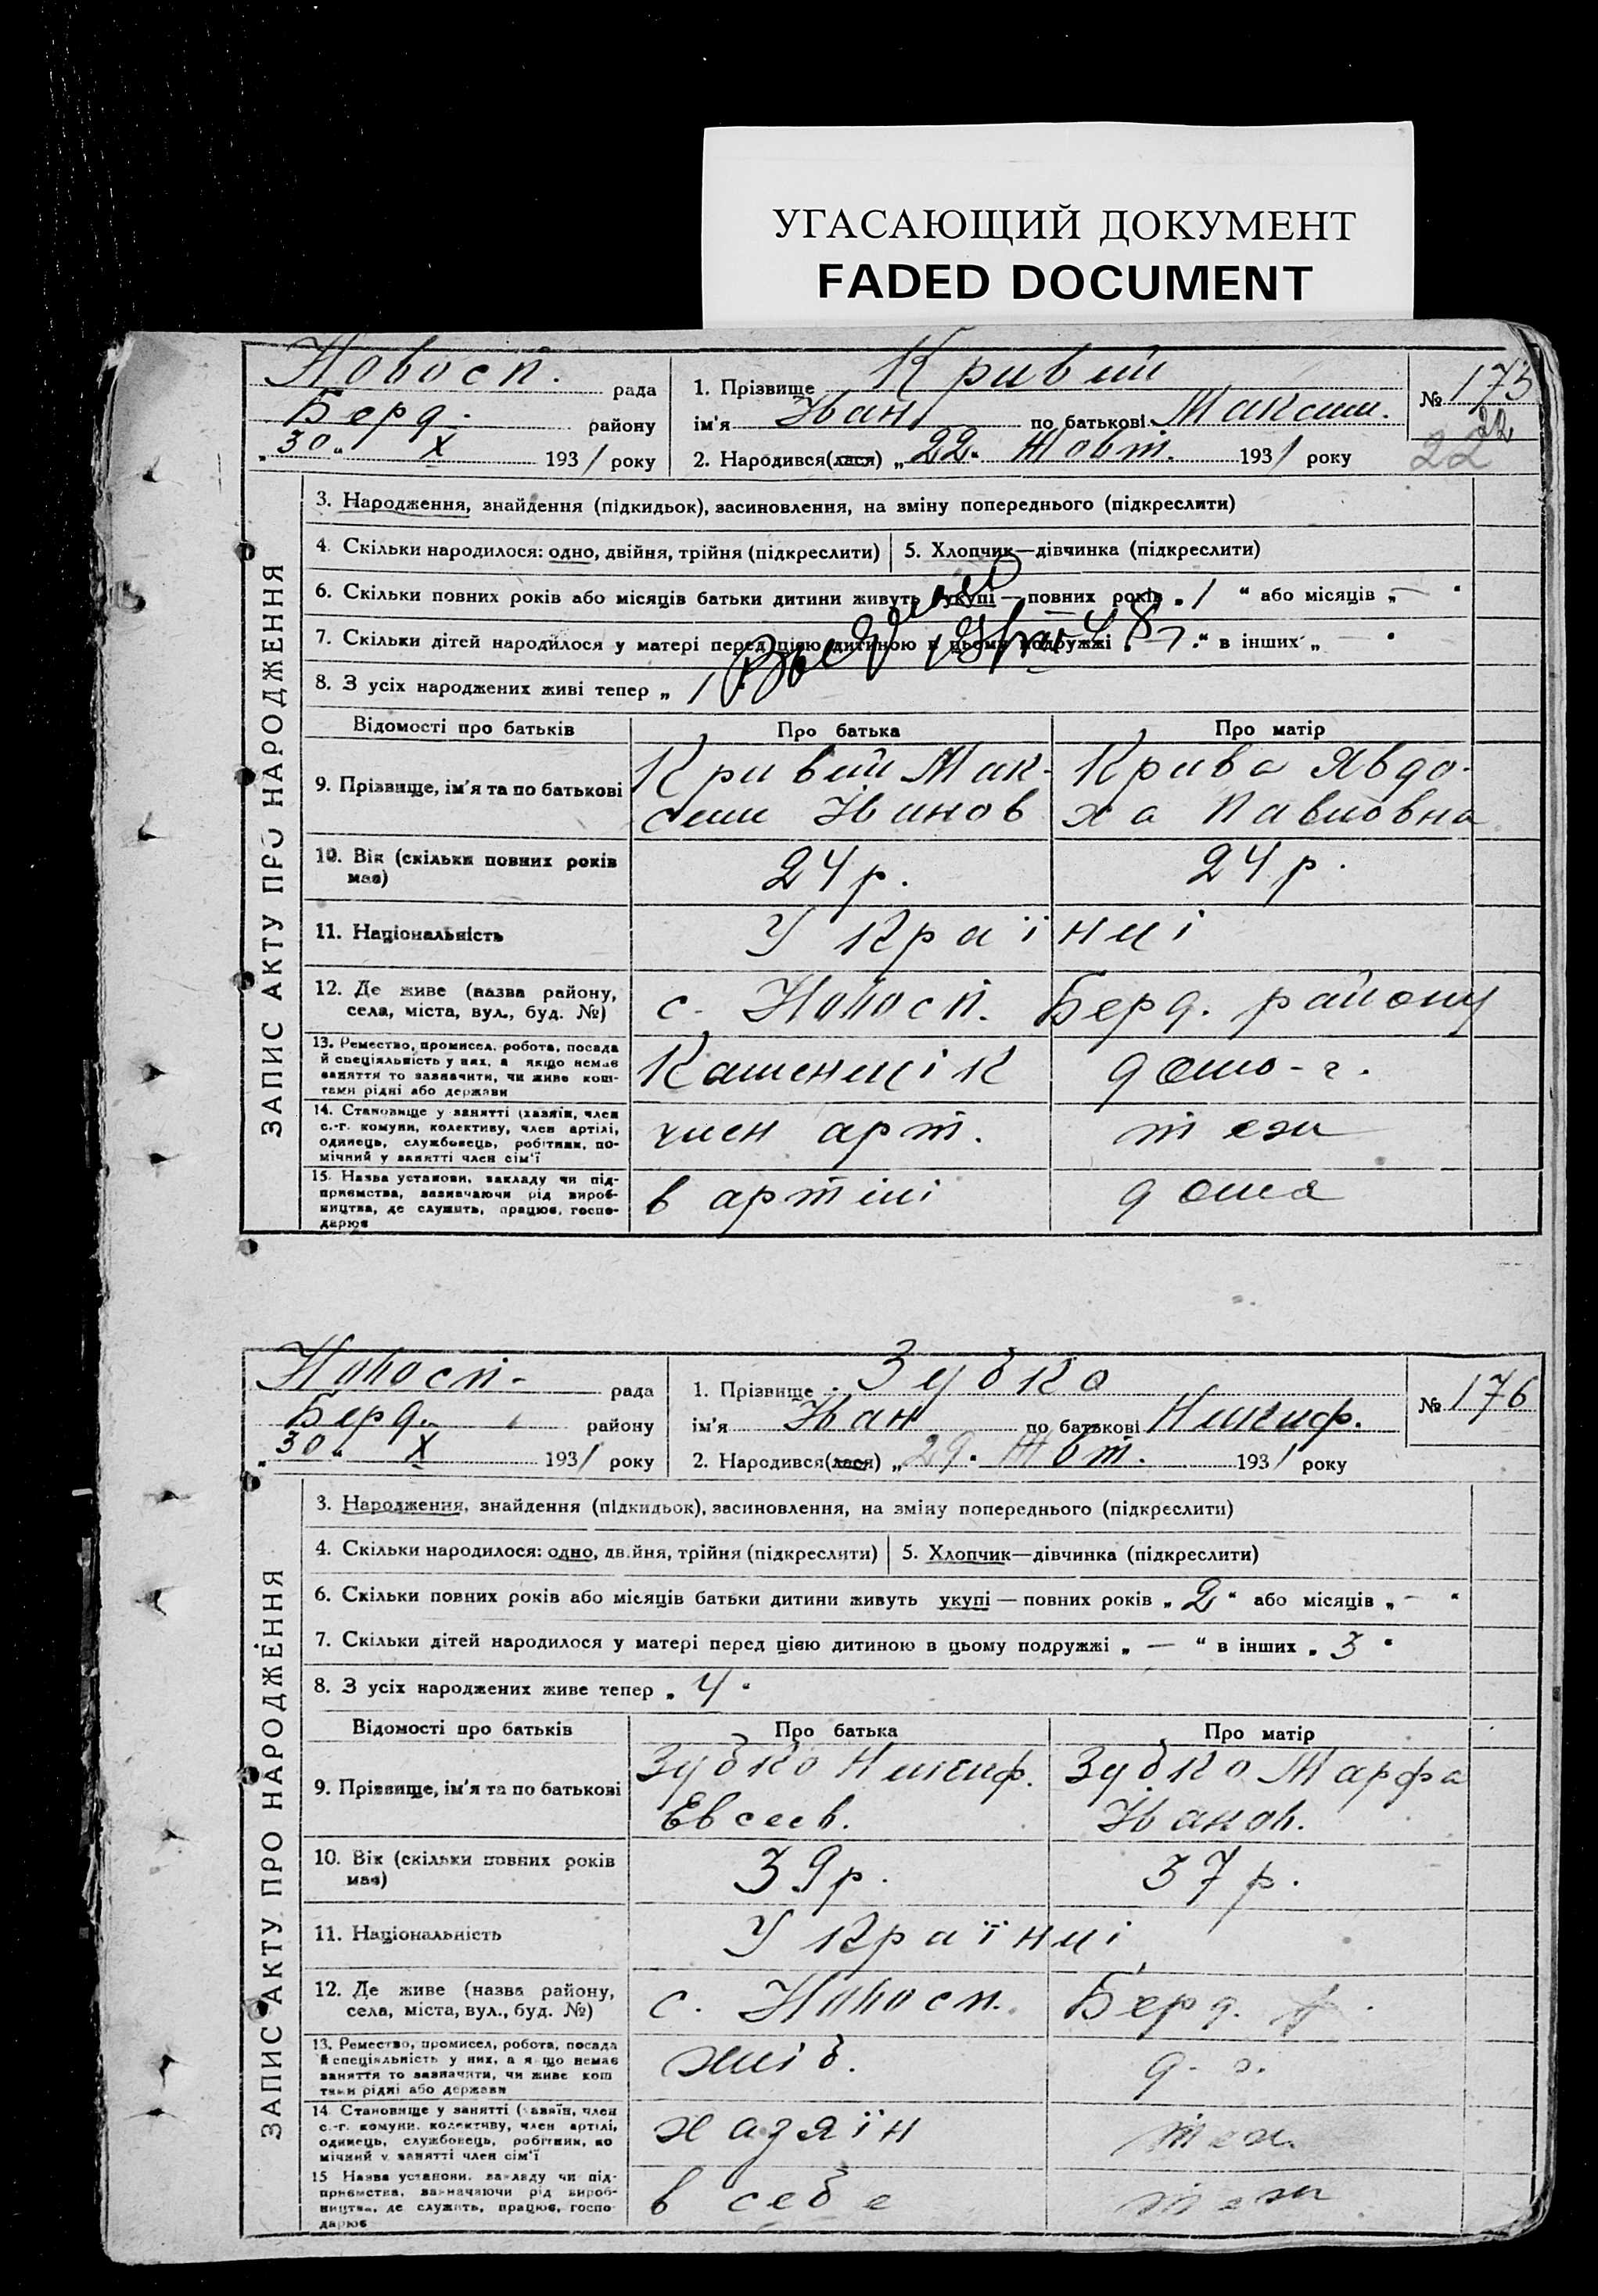 УГАСАЮЩИЙ ДОКУМЕНТ
FADED DOCUMENT
Новосп. рада
Берд. району
"30" X 1931 року
1. Прізвище Кривий
ім'я Іван по батькові Максим.
2. Народився(лася) „22" Жовт. 1931 року
№ 175
22
22
ЗАПИС АКТУ ПРО НАРОДЖЕННЯ
3. Народження, знайдення (підкидьок), засиновлення, на зміну попереднього (підкреслити)
4. Скільки народилося: одно, двійня, трійня (підкреслити) 5. Хлопчик—дівчинка (підкреслити)
6. Скільки повних років або місяців батьки дитини живуть укупі — повних років „1" або місяців „—"
7. Скільки дітей народилося у матері перед цією дитиною в цьому подружжі " в інших „—"
8. З усіх народжених живі тепер „1"
Відомості про батьків Про батька Про матір
9. Прізвище, ім'я та по батькові Кривий Мак- Крива Явдо-
сим Іванов ха Павловна
10. Вік (скільки повних років має) 24 р. 24 р.
11. Національність Українці
12. Де живе (назва району, села, міста, вул., буд. №) с. Новосп. Берд. району
13. Ремество, промисел, робота, посада
й спеціяльність у них, а якщо немає
заняття то зазначити, чи живе кош-
тами рідні або держави Каменщік домо-г.
14. Становище у занятті (хазяїн, член
с.-г. комуни, колективу, член артілі,
одинець, службовець, робітник, по-
мічний у занятті член сім'ї член арт. теж
15. Назва установи, закладу чи під-
приємства, зазначаючи рід вироб-
ництва, де служить, працює, госпо-
дарює в артілі дома
Новосп. рада
Берд. району
"30" X 1931 року
1. Прізвище Зубко
ім'я Іван по батькові Никиф.
2. Народився(лася) „29" Жовт. 1931 року
№ 176
ЗАПИС АКТУ ПРО НАРОДЖЕННЯ
3. Народження, знайдення (підкидьок), засиновлення, на зміну попереднього (підкреслити)
4. Скільки народилося: одно, двійня, трійня (підкреслити) 5. Хлопчик—дівчинка (підкреслити)
6. Скільки повних років або місяців батьки дитини живуть укупі — повних років „2" або місяців „—"
7. Скільки дітей народилося у матері перед цією дитиною в цьому подружжі „—" в інших „3"
8. З усіх народжених живе тепер „4"
Відомості про батьків Про батька Про матір
9. Прізвище, ім'я та по батькові Зубко Никиф. Зубко Марфа
Евсеев. Іванов.
10. Вік (скільки повних років має) 39 р. 37 р.
11. Національність Українці
12. Де живе (назва району, села, міста, вул., буд. №) с. Новосп. Берд. р.
13. Ремество, промисел, робота, посада
й спеціяльність у них, а якщо немає
заняття то зазначити, чи живе кош
тами рідні або держави хліб. д. г.
14. Становище у занятті (хазяїн, член
с.-г. комуни, колективу, член артілі,
одинець, службовець, робітник, по
мічний у занятті член сім'ї хазяїн теж
15 Назва установи, закладу чи під-
приємства, зазначаючи рід вироб-
ництва, де служить, працює, госпо-
дарює в себе теж